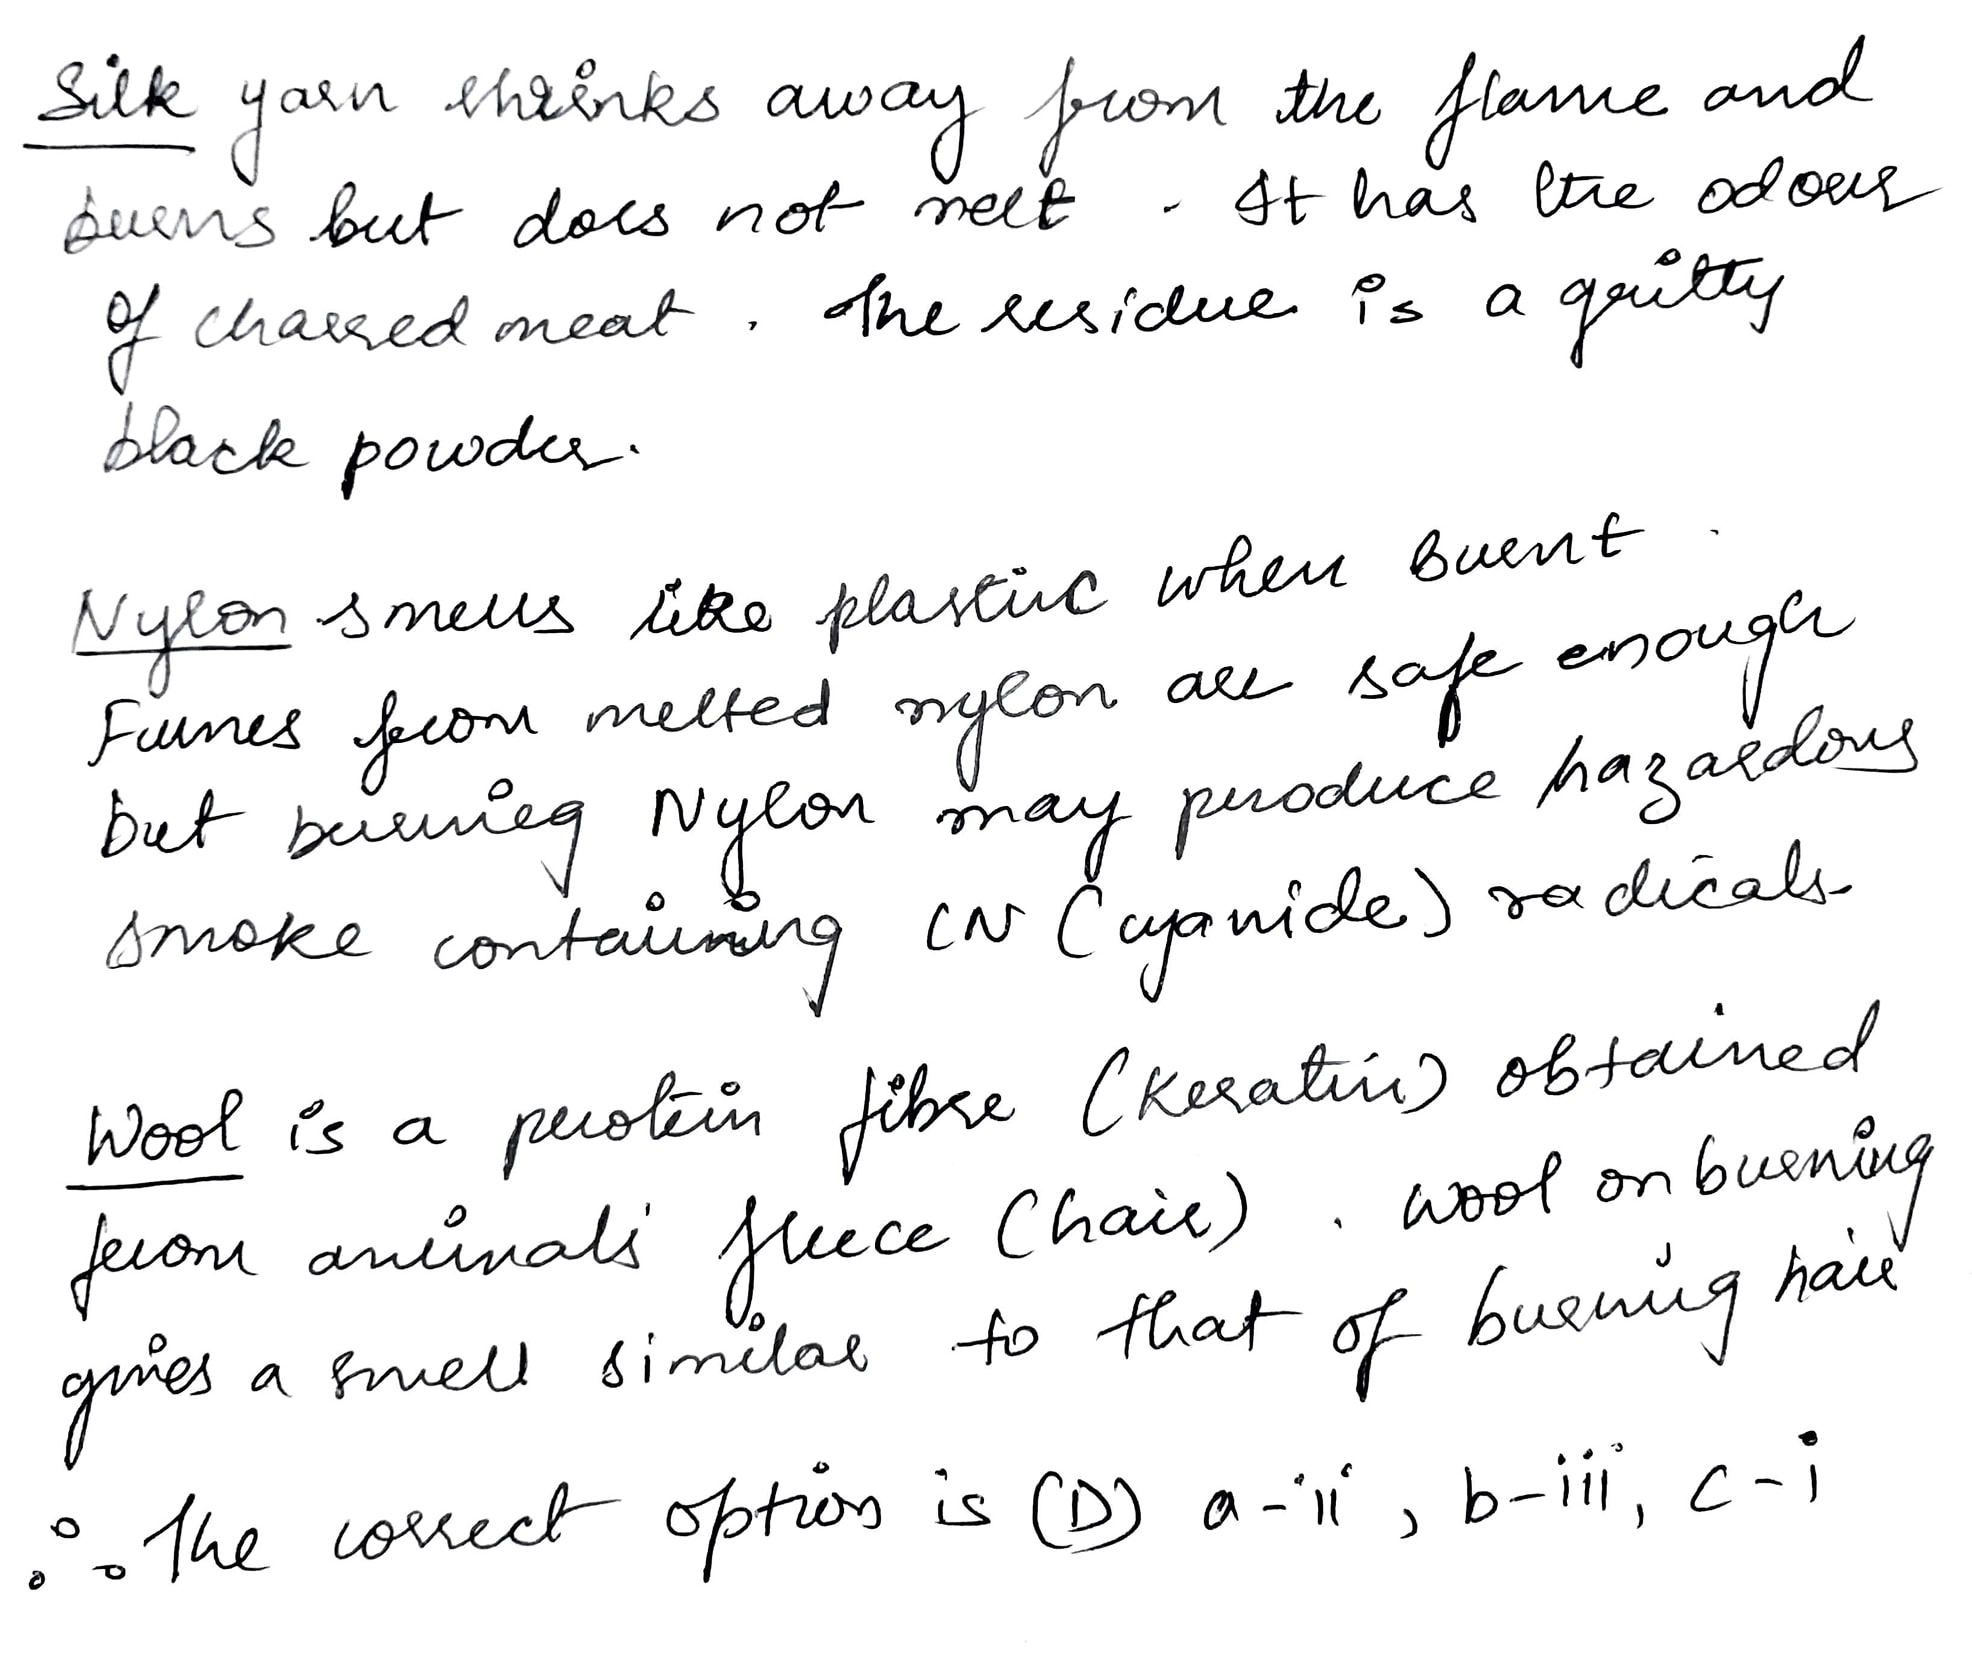 Silk yarn shrinks away from the flame and
burns but does not melt. It has the odour
of charred meat. The residue is a gritty
black powder.
Nylon smells like plastic when burnt.
Fumes from melted nylon are safe enough
but burning Nylon may produce hazardous
smoke containing CN (cyanide) radicals.
Wool is a protein fibre (Keratin) obtained
from animals' fleece (hair). Wool on burning
gives a smell similar to that of burning hair
∴ The correct option is (D) a-ii, b-iii, c-i